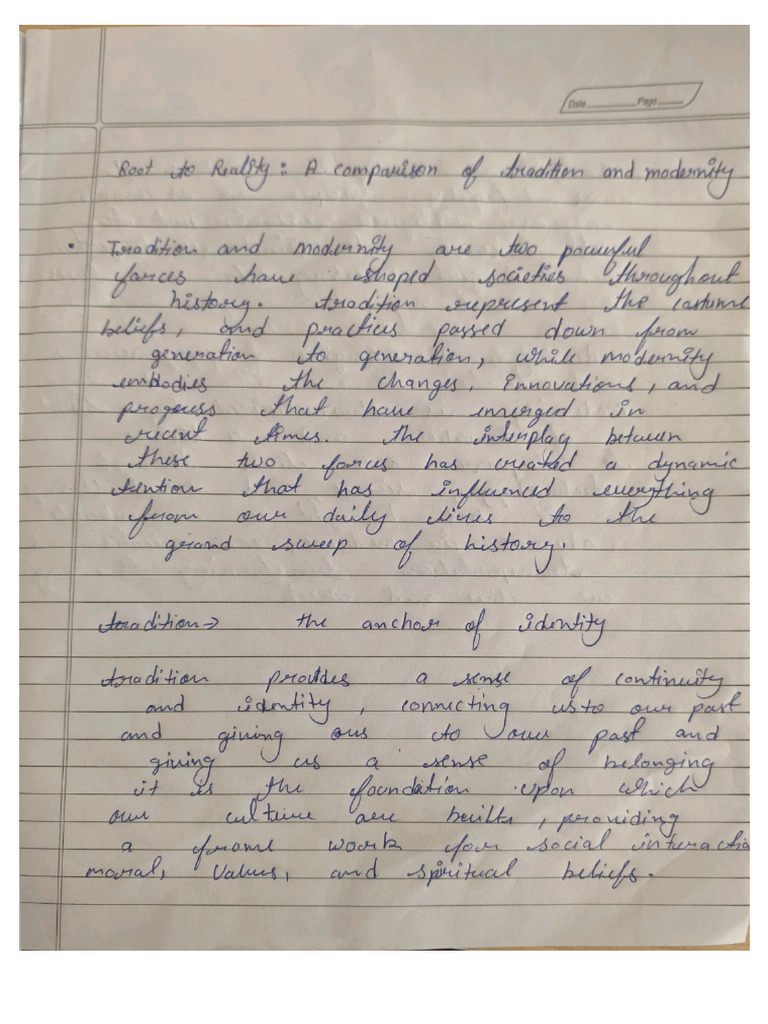 Date Page
Root to Reality: A comparison of tradition and modernity
• Tradition and modernity are two powerful
forces have shaped societies throughout
history. tradition represent the custume
beliefs, and practices passed down from
generation to generation, while modernity
embodies the changes, innovations, and
progress that have emerged in
recent times. the interplay between
these two forces has created a dynamic
tention that has influenced everything
from our daily lives to the
grand sweep of history.
tradition→ the anchor of identity
tradition provides a sense of continuity
and identity, connecting us to our past
and giving ous to our past and
giving us a sense of belonging
it is the foundation upon which
our culture are built, providing
a frame work for social interactio
moral, values, and spiritual beliefs.